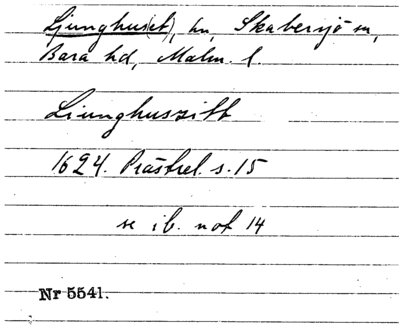 Ljunghus(et), hn, Skabersjö sn,
Bara hd, Malm. l.
Liunghuszitt
1624. Prästrel. s. 15
se ib. not 14
Nr 5541.